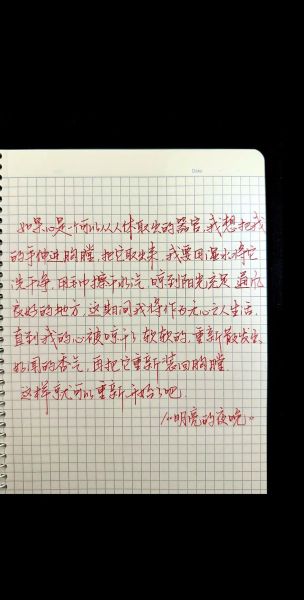 Date
如果心是一个可以从人体取出的器官，我想把我
的手伸进胸膛，把它取出来，我要用温水将它
洗干净，用毛巾擦干水汽，晾到阳光充足，通风
良好的地方，这期间我将作为无心之人生活，
直到我的心被晾干了，软软的，重新散发出
好闻的香气，再把它重新装回胸膛，
这样就可以重新开始了吧。
《明亮的夜晚》